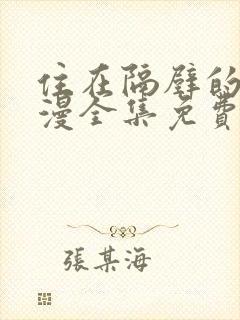 住在隔壁的
漫全集免費
張某海